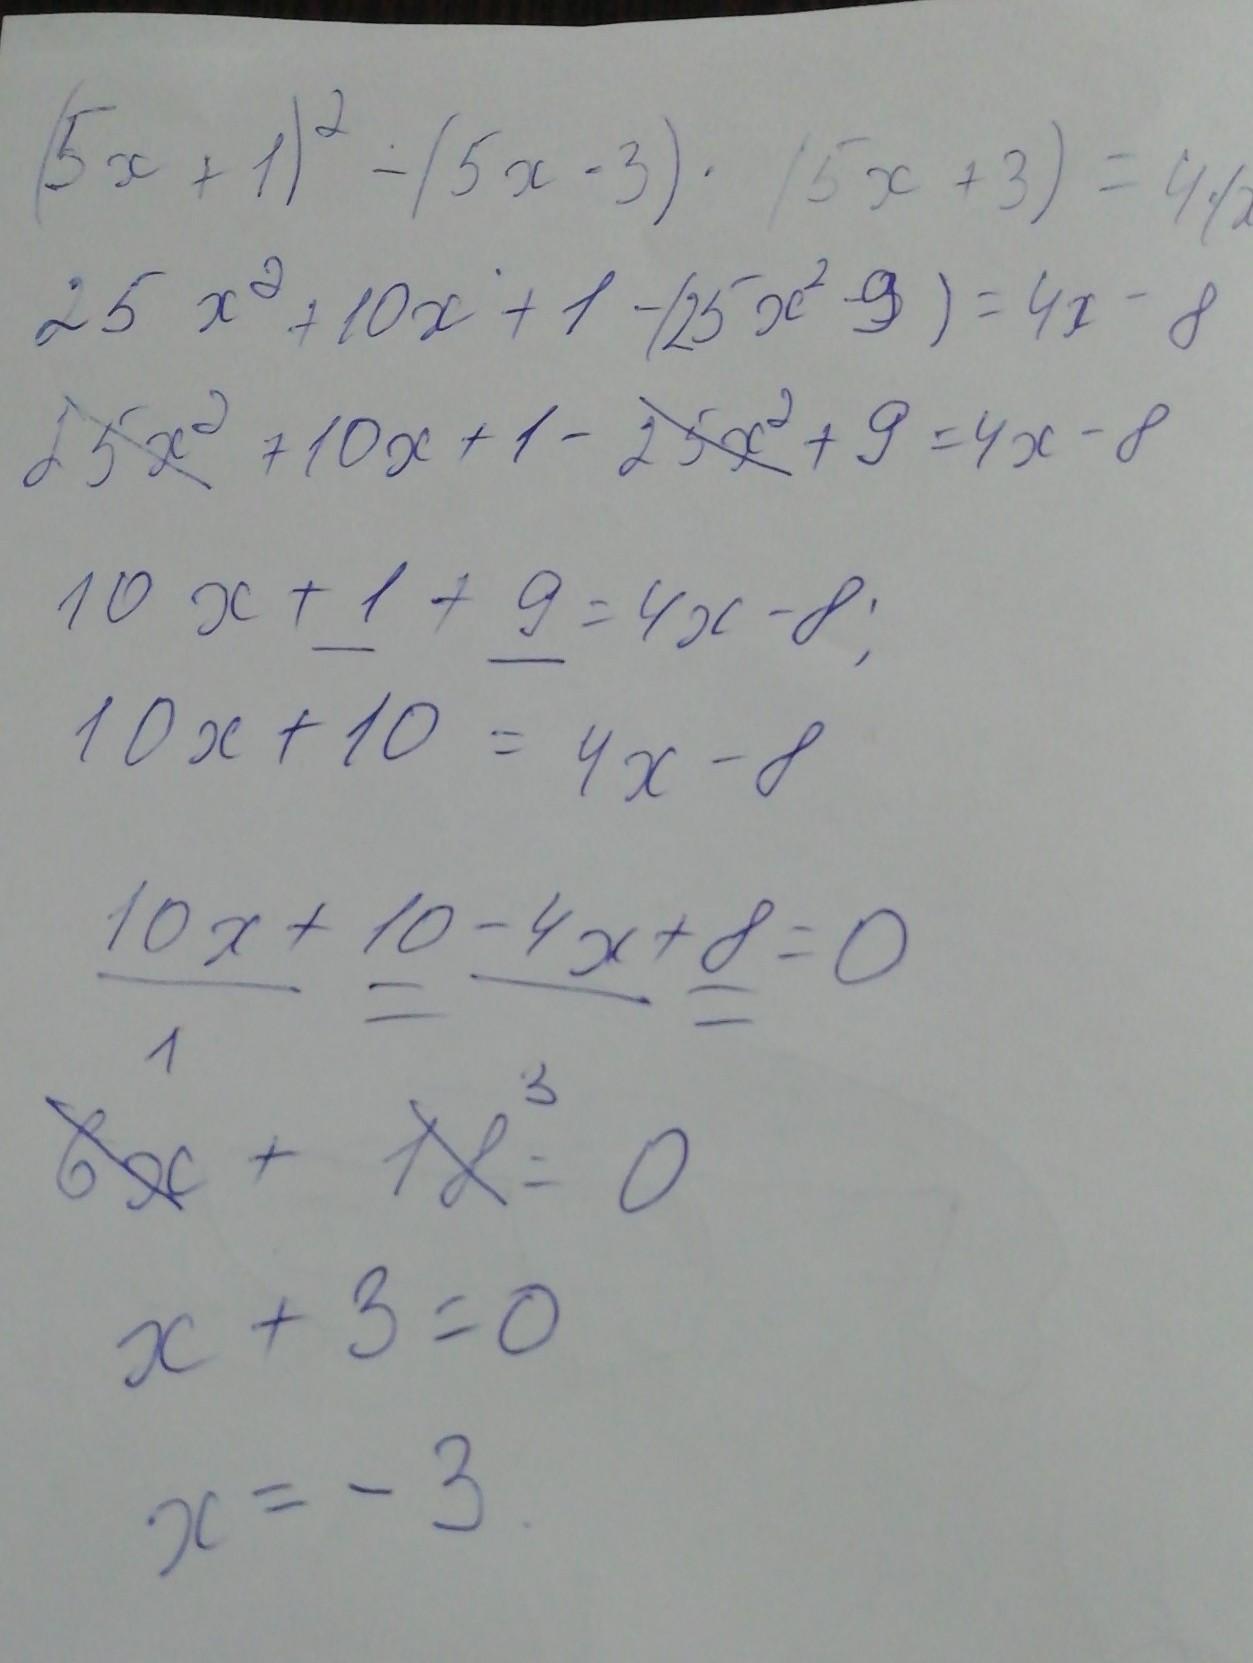 (5x + 1)² - (5x - 3) · (5x + 3) = 4·(x
25 x² + 10x + 1 - (25x² - 9) = 4x - 8
25x² + 10x + 1 - 25x² + 9 = 4x - 8
10 x + 1 + 9 = 4x - 8;
10x + 10 = 4x - 8
10x + 10 - 4x + 8 = 0
1 3
6x + 18 = 0
x + 3 = 0
x = - 3.